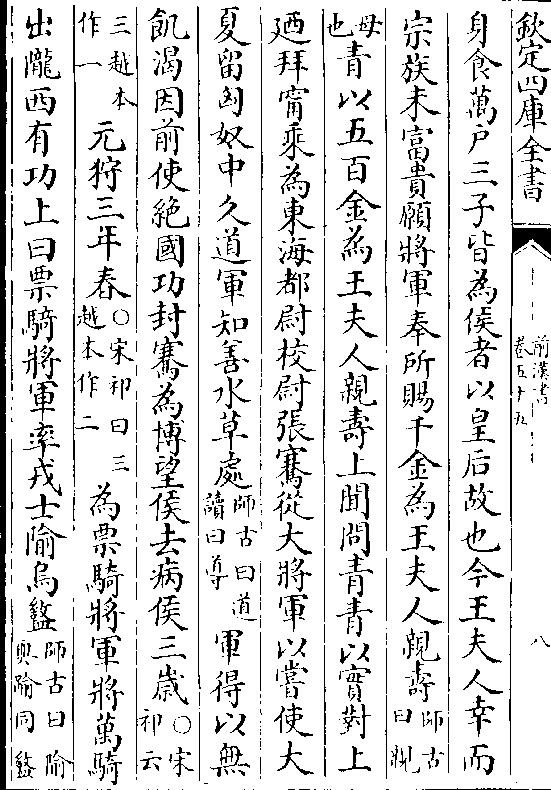 欽定四庫全書
前漢書
卷五十五
八
身食萬户三子皆為侯者以皇后故也今王夫人幸而
宗族未富貴願將軍奉所賜千金為王夫人親壽師古曰親
母也青以五百金為王夫人親壽上聞問青青以實對上
廼拜甯乘為東海都尉校尉張騫從大將軍以嘗使大
夏留匈奴中久道軍知善水草處師古曰道讀曰導軍得以無
飢渴因前使絶國功封騫為博望侯去病侯三歲○宋祁云
三越本作一元狩三年春○宋祁曰三越本作二為票騎將軍將萬騎
出隴西有功上曰票騎將軍率戎士隃烏盭師古曰隃與踰同盭